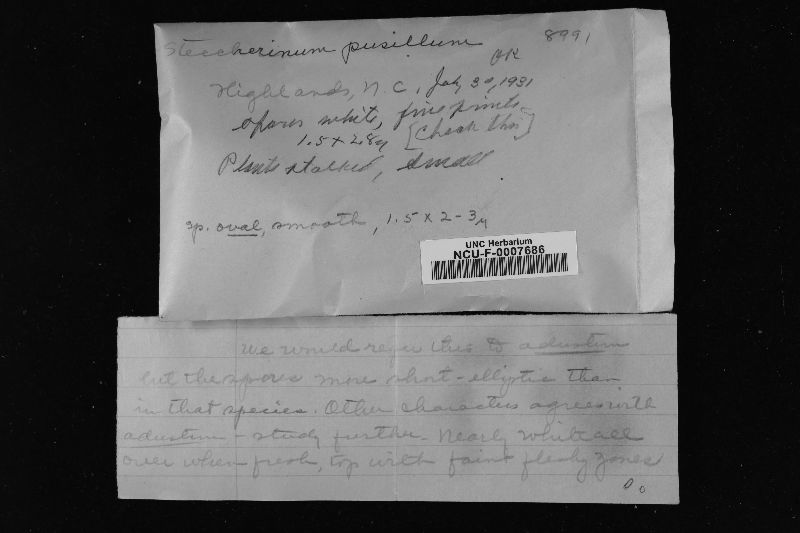 Steccherinum pusillum 8991
OK
Highlands, N. C., July 30, 1931
spores white, fine prints
1.5 x 2.8μ [Check this]
Plants stalked, small.
sp. oval, smooth, 1.5 x 2-3μ
UNC Herbarium
NCU-F-0007686
We would refer this to adustum
but the spores more short-elliptic than
in that species. Other characters agree with
adustum - study further. Nearly white all
over when fresh, top with faint fleshy zones